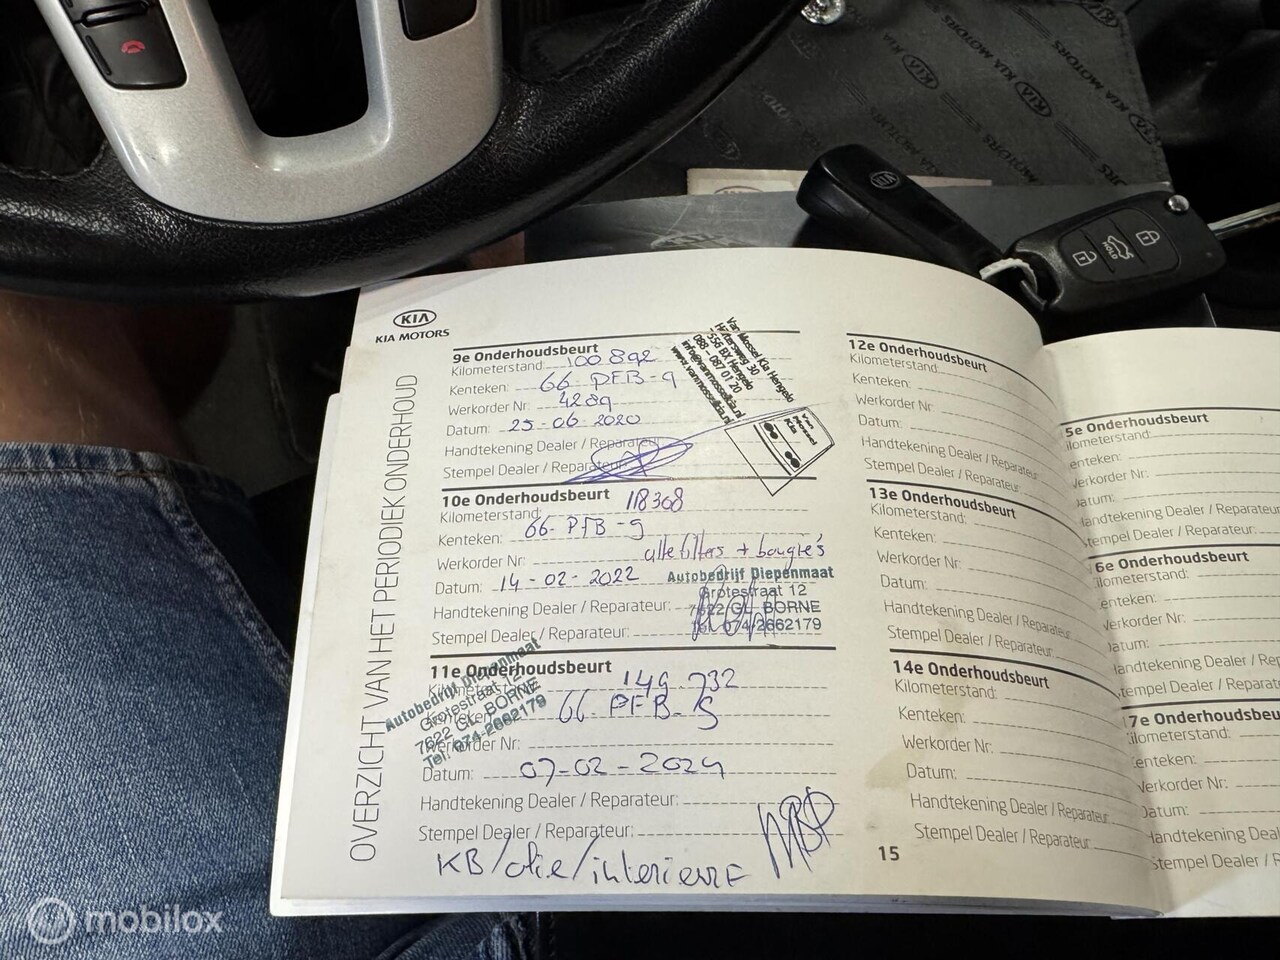 KIA
KIA MOTORS
OVERZICHT VAN HET PERIODIEK ONDERHOUD
9e Onderhoudsbeurt
Kilometerstand: 100892
Kenteken: 66 PFB-9
Werkorder Nr: 4289
Datum: 25-06-2020
Handtekening Dealer / Reparateur:
Stempel Dealer / Reparateur:
Van Mossel Kia Hengelo
30
BX Hengelo
088 - 087 01 20
10e Onderhoudsbeurt
Kilometerstand: 118308
Kenteken: 66-PFB-9
Werkorder Nr: alle filters + bougie's
Datum: 14-02-2022
Handtekening Dealer / Reparateur:
Stempel Dealer / Reparateur:
Autobedrijf Diepenmaat
Grotestraat 12
7622 GL BORNE
Tel. 074-2662179
11e Onderhoudsbeurt
149.732
66 PFB-9
Werkorder Nr:
Datum: 07-02-2024
Handtekening Dealer / Reparateur:
Stempel Dealer / Reparateur:
KB/olie/interieurF
Autobedrijf Diepenmaat
Grotestraat 12
7622 GL BORNE
Tel. 074-2662179
12e Onderhoudsbeurt
Kilometerstand:
Kenteken:
Werkorder Nr:
Datum:
Handtekening Dealer / Reparateur
Stempel Dealer / Reparateur:
13e Onderhoudsbeurt
Kilometerstand:
Kenteken:
Werkorder Nr:
Datum:
Handtekening Dealer / Reparateur
Stempel Dealer / Reparateur:
14e Onderhoudsbeurt
Kilometerstand:
Kenteken:
Werkorder Nr:
Datum:
Handtekening Dealer / Reparateur:
Stempel Dealer / Reparateur:
15
5e Onderhoudsbeurt
ilometerstand:
enteken:
Werkorder Nr:
Datum:
Handtekening Dealer / Reparateur
Stempel Dealer / Reparateur:
6e Onderhoudsbeurt
ilometerstand:
enteken:
Werkorder Nr:
atum:
Handtekening Dealer / Reparateur
tempel Dealer / Reparateur:
7e Onderhoudsbeu
ilometerstand:
enteken:
Werkorder Nr:
atum:
Handtekening Dealer / Reparateur
Stempel Dealer / Reparateur:
KIA
HOLD
KIA MOTORS
KIA MOTORS
mobilox